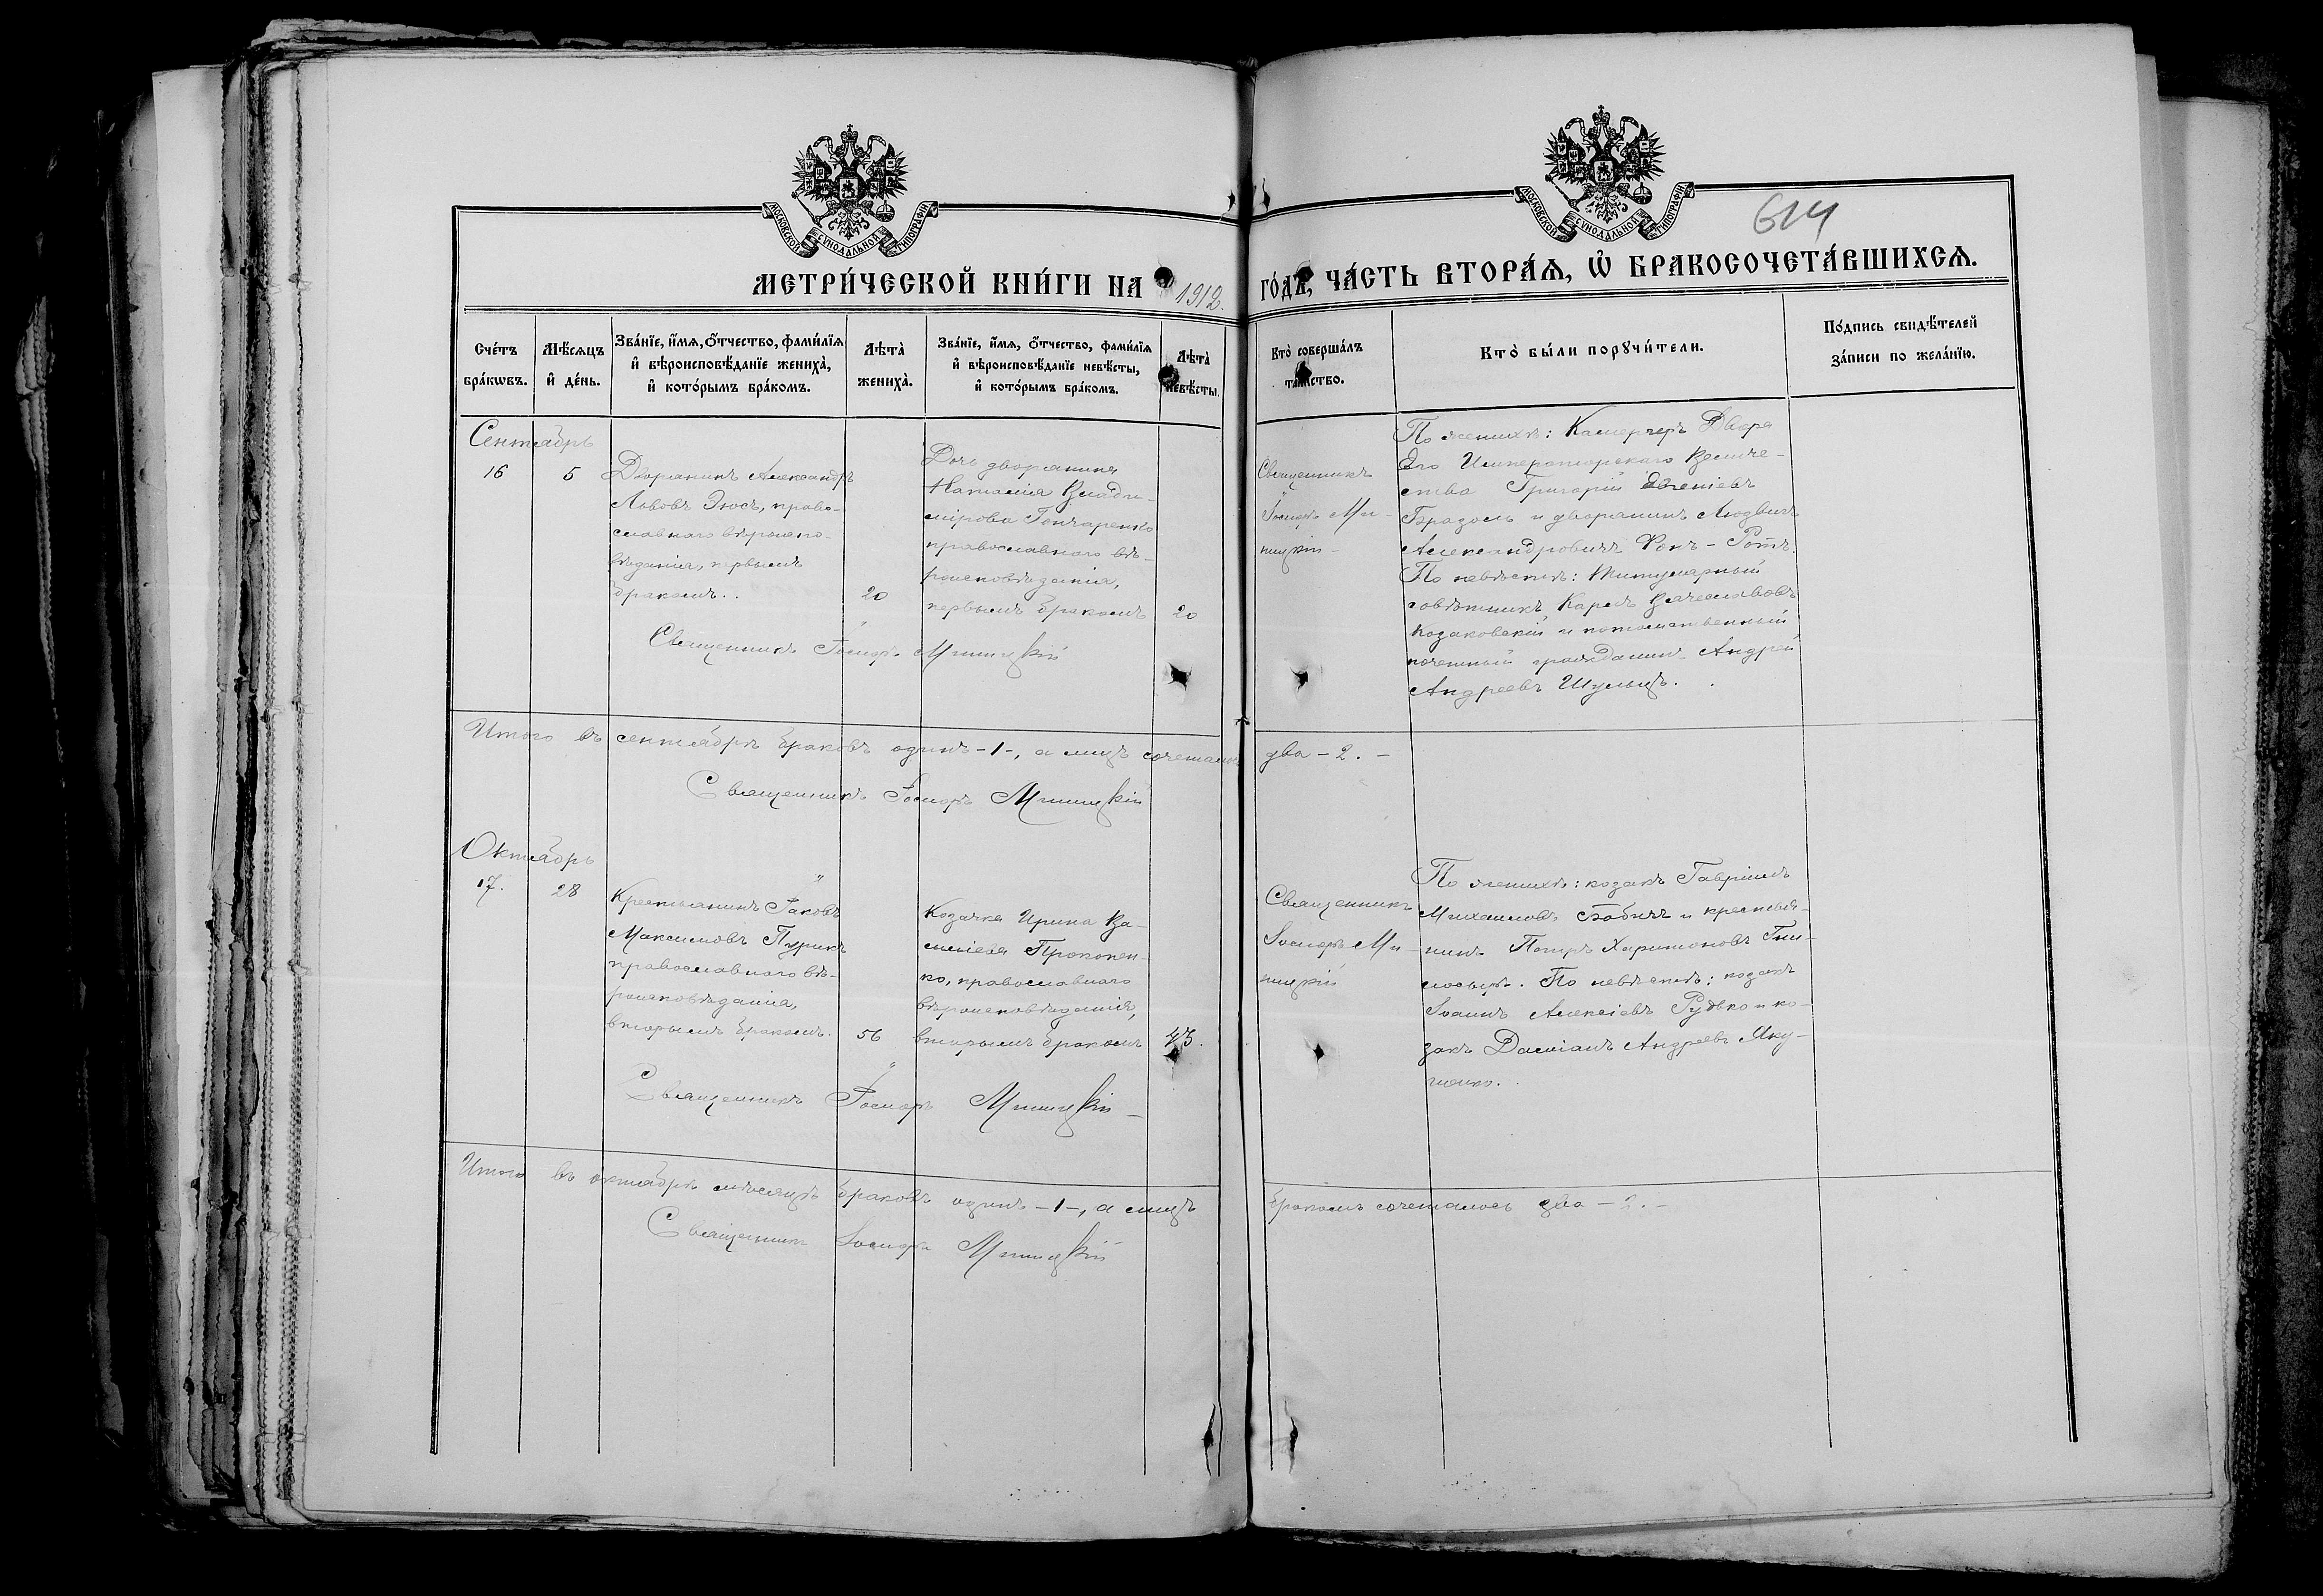 МОСКОВСКОЙ СУНОДАЛЬНОЙ ТИПОГРАФІИ
МОСКОВСКОЙ СУНОДАЛЬНОЙ ТИПОГРАФІИ
614
МЕТРИ́ЧЕСКОЙ КНИ́ГИ НА 1912. ГО́ДЪ, ЧА́СТЬ ВТОРА́Ѧ, Ѡ҆ БРАКОСОЧЕТА́ВШИХСѦ.
Сче́тъ бра́кѡвъ.
Мѣ́сѧцъ и҆ де́нь.
Зва́нїе, и҆́мѧ, ѻ҆́тчество, фами́лїѧ и҆ вѣроисповѣ́данїе жениха̀, и҆ кото́рымъ бра́комъ.
Лѣта̀ жениха̀.
Зва́нїе, и҆́мѧ, ѻ҆́тчество, фами́лїѧ и҆ вѣроисповѣ́данїе невѣ́сты, и҆ кото́рымъ бра́комъ.
Лѣта̀ невѣ́сты.
Кто̀ соверша́лъ та́инство.
Кто̀ бы́ли порꙋчи́тели.
По́дпись свидѣ́телей за́писи по жела́нїю.
Сентябрь
16
5
Дворянинъ Александръ
Львовъ Зюсъ, право-
славнаго вѣроиспо-
вѣданія, первымъ
бракомъ..
20
Дочь дворянина
Наталія Влади-
мірова Гончаренко
православнаго вѣ-
роисповѣданія,
первымъ бракомъ
20
Священникъ
Іосифъ Ми-
ницкій -
По женихѣ: Камергеръ Двора
Его Императорскаго Величе-
ства Григорій Евгеніевъ
Брадоль и дворянинъ Людвигъ
Александровичъ Фонъ-Ротъ.
По невѣстѣ: Титулярный
совѣтникъ Карлъ Вячеславовъ
Козаковскій и потомственный
почетный гражданинъ Андрей
Андреевъ Шульцъ.
Священникъ Іосифъ Миницкій
Итого въ сентябрѣ браковъ одинъ -1-, а лицъ сочеталось два - 2. -
Священникъ Іосифъ Миницкій
Октябрь
17.
28
Крестьянинъ Іаковъ
Максимовъ Пурикъ
православнаго вѣ-
роисповѣданія,
вторымъ бракомъ.
56
Козачка Ирина Ва-
силіева Прокопен-
ко, православнаго
вѣроисповѣданія,
вторымъ бракомъ
43.
Священникъ
Іосифъ Ми-
ницкій
По женихѣ: козакъ Гавріилъ
Михаиловъ Бабичъ и крестья-
нинъ Петръ Харитоновъ Гни-
лосыръ. По невѣстѣ: козакъ
Іоаннъ Алексіевъ Рудько и ко-
закъ Даміанъ Андреевъ Яку-
Священникъ Іосифъ Миницкій -
Итого въ октябрѣ мѣсяцѣ браковъ одинъ -1-, а лицъ бракомъ сочеталось два - 2. -
Священникъ Іосифъ Миницкій